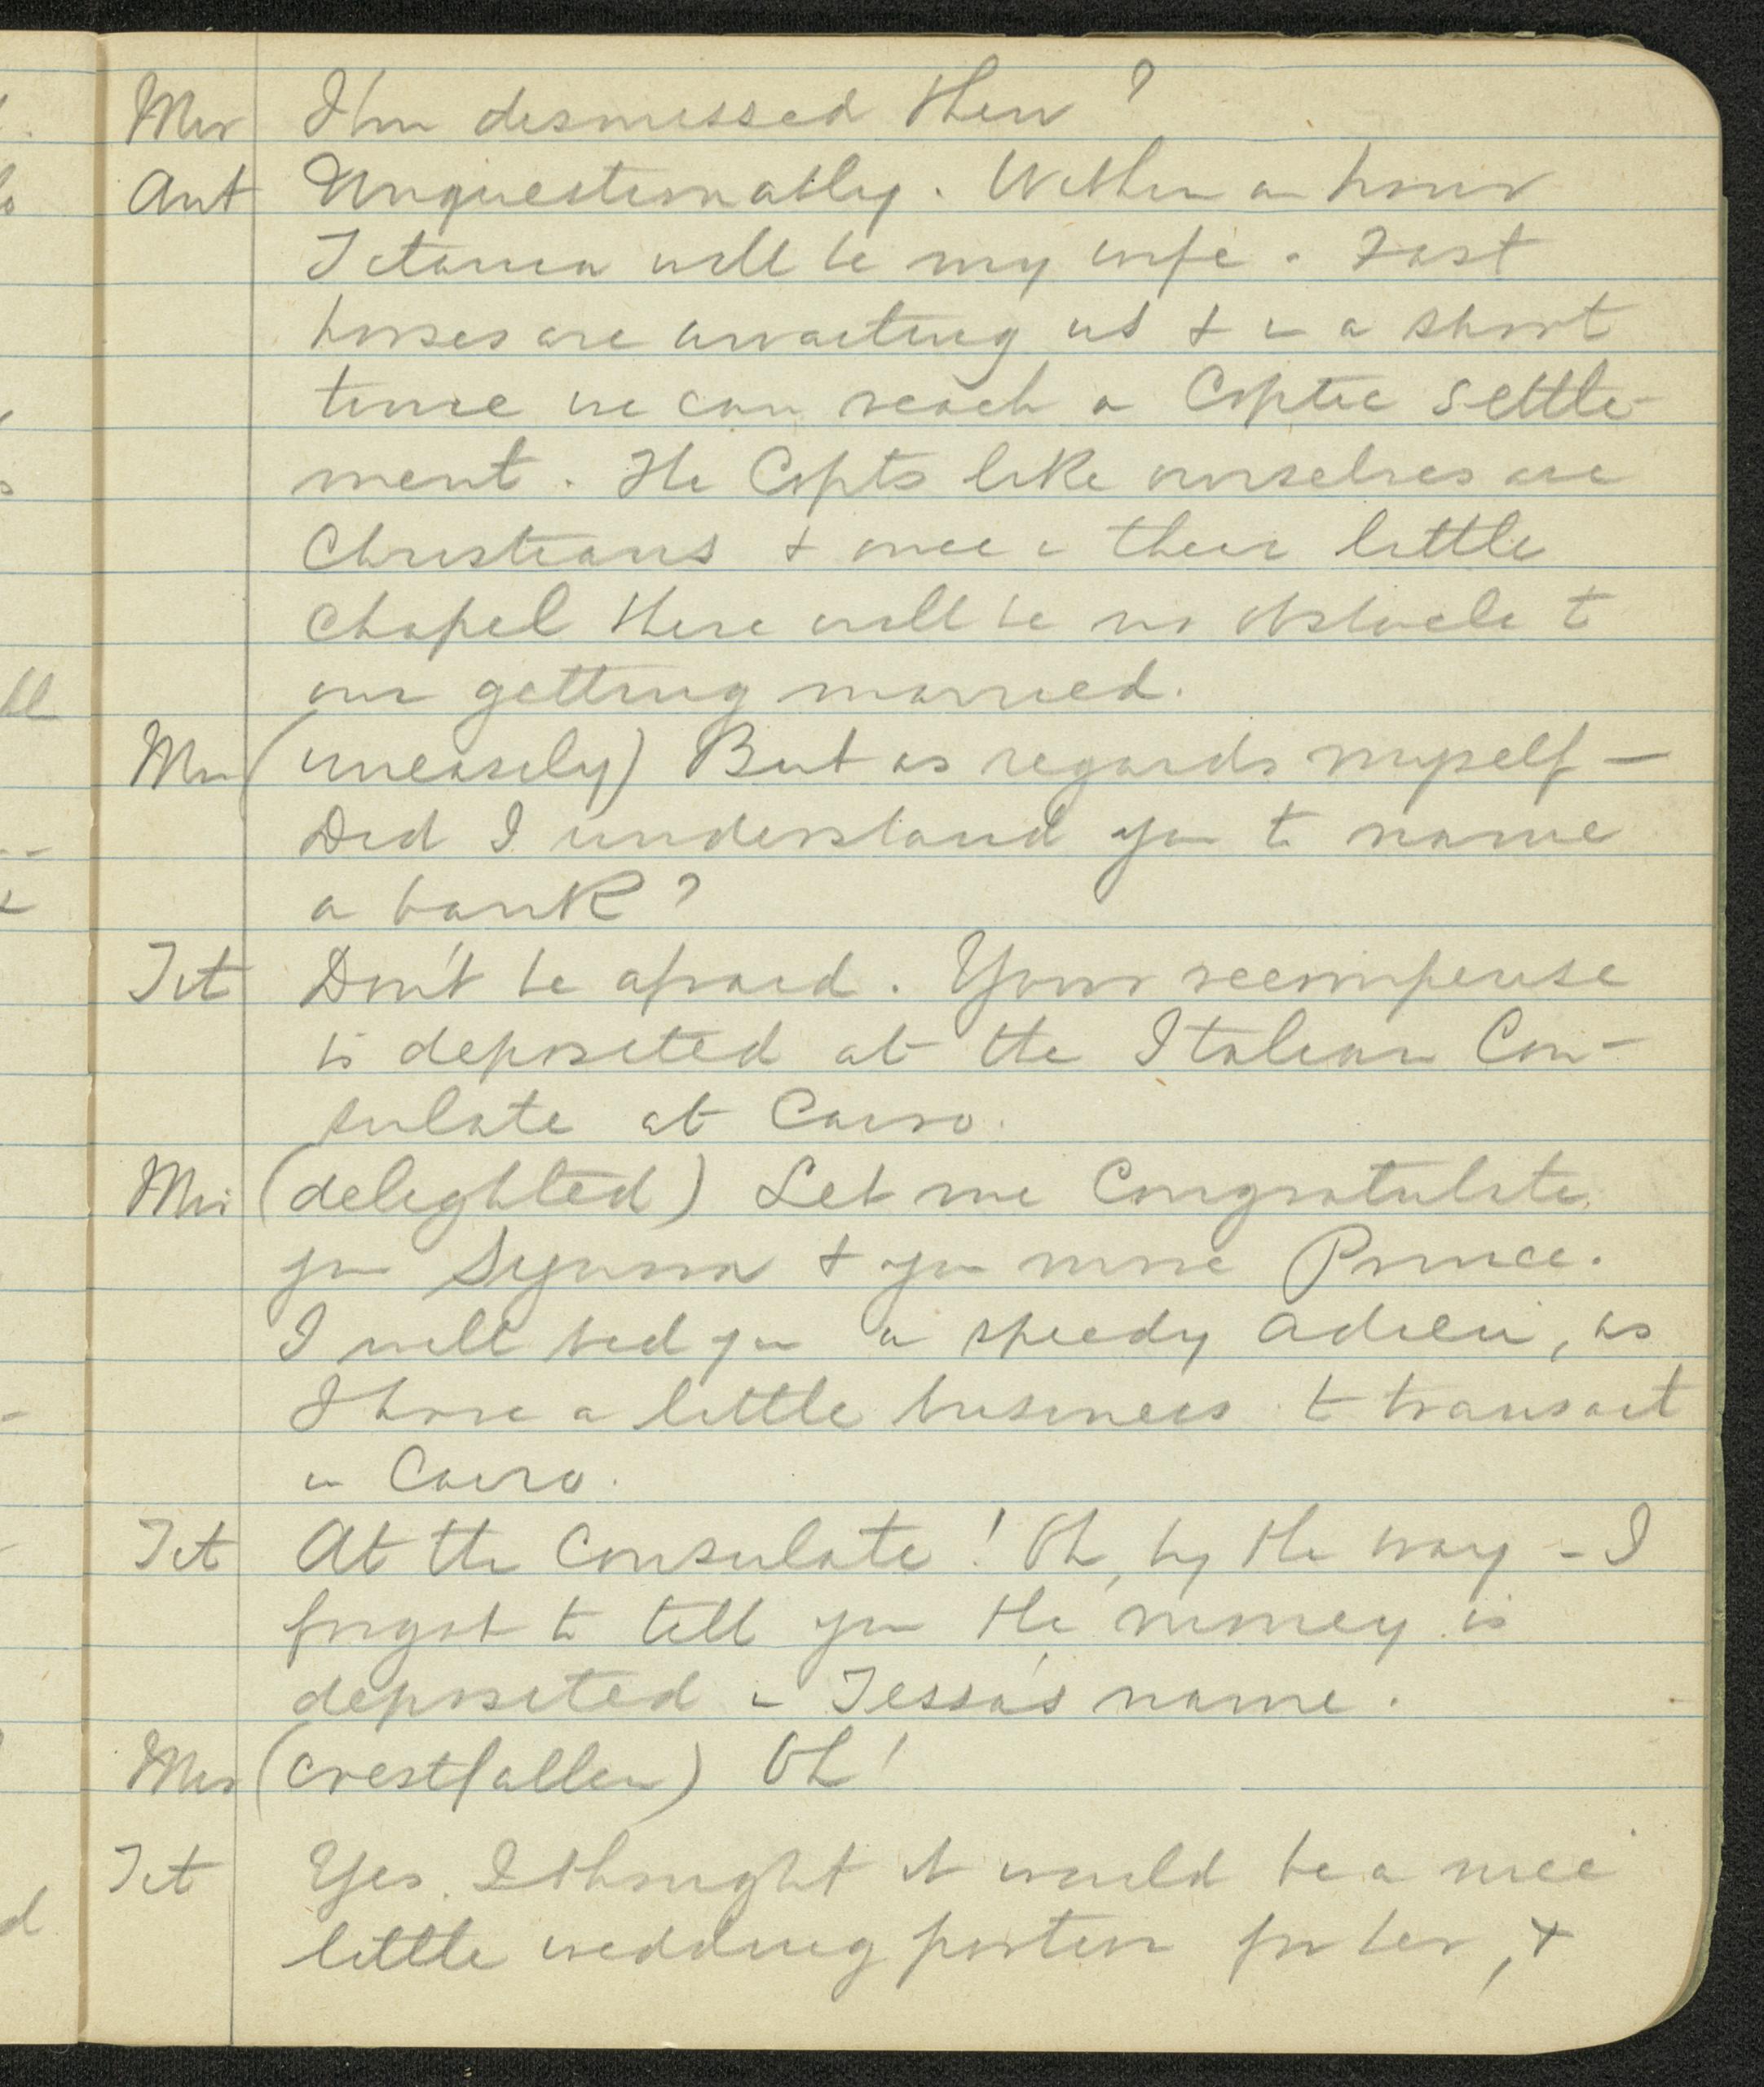 Mir I'm dismissed then?
Ant Unquestionably. Within an hour
Titania will be my wife. Fast
horses are awaiting us & in a short
time we can reach a Coptic settle-
ment. The Copts like ourselves are
Christians & once in their little
chapel there will be no obstacle to
our getting married.
Mir (uneasily) But as regards myself —
Did I understand you to name
a bank?
Tit Don't be afraid. Your recompense
is deposited at the Italian Con-
sulate at Cairo.
Mir (delighted) Let me congratulate
you Signora & you more Prince.
I will bid you a speedy adieu, as
I have a little business to transact
in Cairo.
Tit At the Consulate! Oh, by the way - I
forgot to tell you the money is
deposited in Tessa's name.
Mir (crestfallen) Oh!
Tit Yes. I thought it would be a nice
little wedding portion for her, &